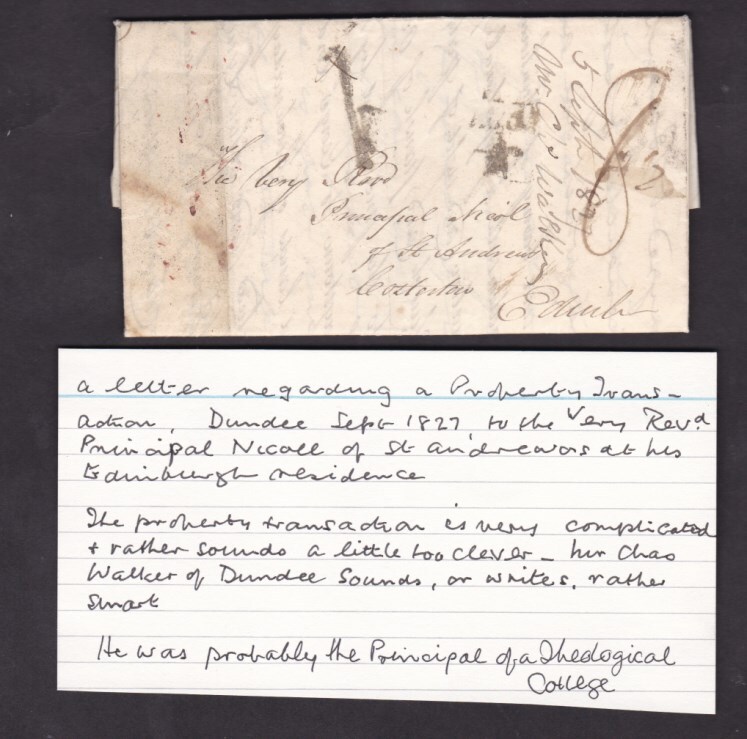 The Very Revd
Principal Nicol
of St Andrews
Coxtorton
Edinbr
5 Septr 1827
Mr Chs Walker
a letter regarding a Property Trans-
action, Dundee Sept 1827, to the Very Revd
Principal Nicoll of St Andrews at his
Edinburgh residence
The property transaction is very complicated
+ rather sounds a little too clever - Mr Chas
Walker of Dundee Sounds, or writes, rather
smart
He was probably the Principal of a Theological
College